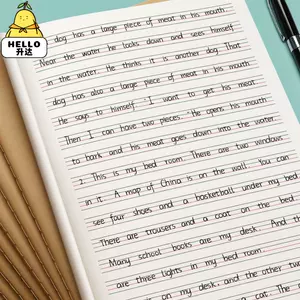 HELLO
升达
dog has a large piece of meat in his mouth.
Near the water he looks down and sees himself
in the water. He thinks it is another dog. That
dog has also a large piece of meat in his mouth.
He says to himself, "I want to get his meat.
Then I can have two pieces." He opens his mouth
to bark and his meat goes down into the water.
2. This is my bed room. There are two windows
in it. A map of China is on the wall. You can
see four shoes and a basketball under my bed.
There are trousers and a coat on the bed.
Many school books are my desk. And there
are three lights in my bed room.
is on my desk, and the other two